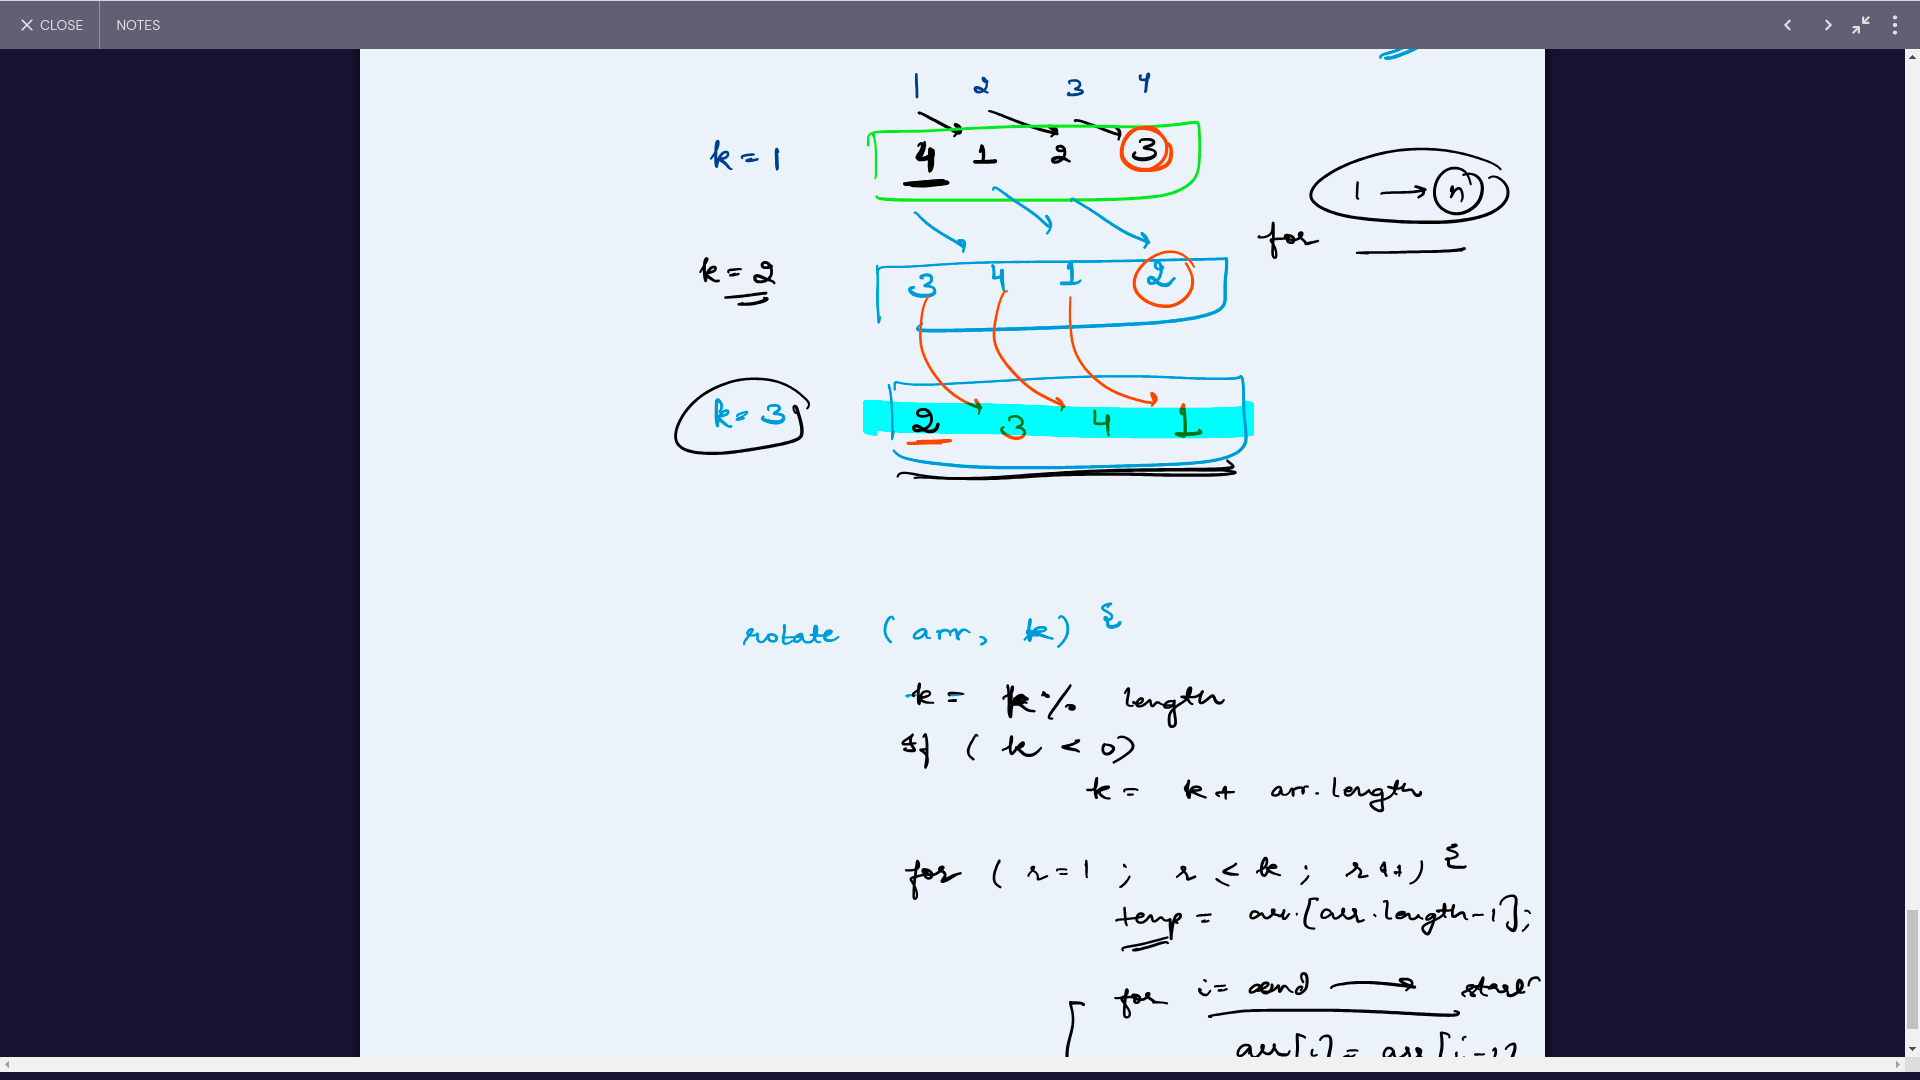 CLOSE NOTES
1 2 3 4
k = 1 4 1 2 3
1 → n
for
k = 2 3 4 1 2
k = 3 2 3 4 1
rotate ( arr, k) {
k = k % length
if ( k < 0)
k = k + arr.length
for ( r=1 ; r ≤ k ; r++) {
temp = arr.[arr.length-1];
for i= end → start
arr[i] = arr[i-1]